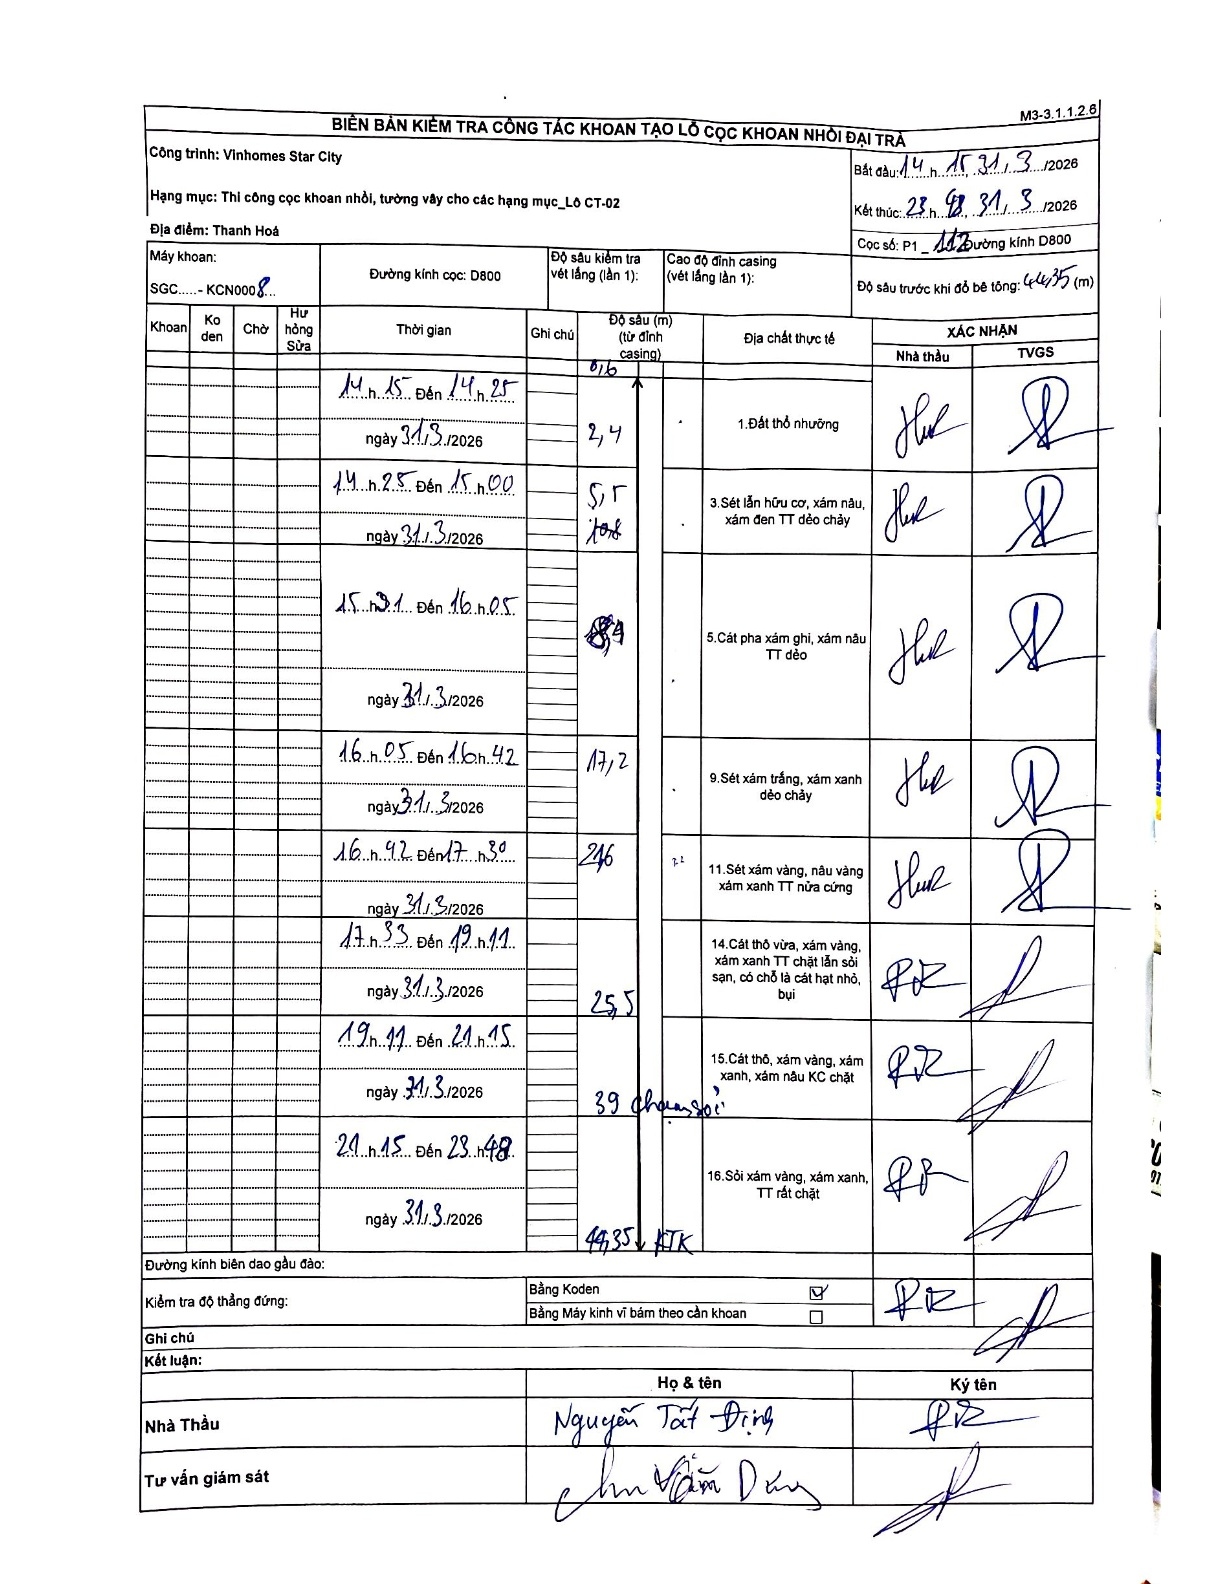 M3-3.1.1.2.6
BIÊN BẢN KIỂM TRA CÔNG TÁC KHOAN TẠO LỖ CỌC KHOAN NHỒI ĐẠI TRÀ
Công trình: Vinhomes Star City
Bắt đầu: 14 h 15, 31/ 3 /2026
Hạng mục: Thi công cọc khoan nhồi, tường vây cho các hạng mục_Lô CT-02
Kết thúc: 23 h 48, 31/ 3 /2026
Địa điểm: Thanh Hoá
Cọc số: P1 _ 112 Đường kính D800
Máy khoan:
SGC.....- KCN0008...
Đường kính cọc: D800
Độ sâu kiểm tra vét lắng (lần 1):
Cao độ đỉnh casing (vét lắng lần 1):
Độ sâu trước khi đổ bê tông: 44,35 (m)
Khoan Ko den Chờ Hư hỏng Sửa Thời gian Ghi chú Độ sâu (m) (từ đỉnh casing) Địa chất thực tế XÁC NHẬN
Nhà thầu TVGS
0,6
14 h 15 Đến 14 h 25
ngày 31/.3./2026
2,4
1.Đất thổ nhưỡng
14 h 25 Đến 15 h 00
ngày 31/.3./2026
5,5
3.Sét lẫn hữu cơ, xám nâu,
xám đen TT dẻo chảy
15 h 31 Đến 16 h 05
ngày 31/.3./2026
5.Cát pha xám ghi, xám nâu
TT dẻo
16 h 05 Đến 16 h 42
ngày 31/.3/2026
17,2
9.Sét xám trắng, xám xanh
dẻo chảy
16 h 42 Đến 17 h 30
ngày 31/.3/2026
21,6
11.Sét xám vàng, nâu vàng
xám xanh TT nửa cứng
17 h 33 Đến 19 h 11
ngày 31/.3/2026
25,5
14.Cát thô vừa, xám vàng,
xám xanh TT chặt lẫn sỏi
sạn, có chỗ là cát hạt nhỏ,
bụi
19 h 11 Đến 21 h 15
ngày 31/.3/2026
39 chạm sỏi
15.Cát thô, xám vàng, xám
xanh, xám nâu KC chặt
21 h 15 Đến 23 h 48
ngày 31/.3/2026
44,35 KTK
16.Sỏi xám vàng, xám xanh,
TT rất chặt
Đường kính biên dao gầu đào:
Kiểm tra độ thẳng đứng:
Bằng Koden
Bằng Máy kinh vĩ bám theo cần khoan
Ghi chú
Kết luận:
Họ & tên Ký tên
Nhà Thầu Nguyễn Tất Định
Tư vấn giám sát